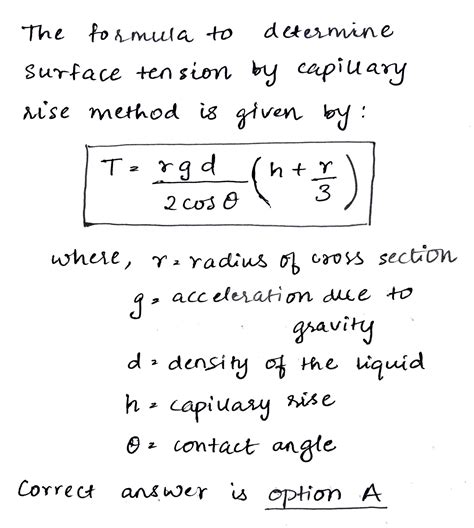 The formula to determine
surface tension by capillary
rise method is given by:
T = rgd / 2 cos θ (h + r/3)
where, r = radius of cross section
g = acceleration due to
gravity
d = density of the liquid
h = capillary rise
θ = contact angle
Correct answer is option A